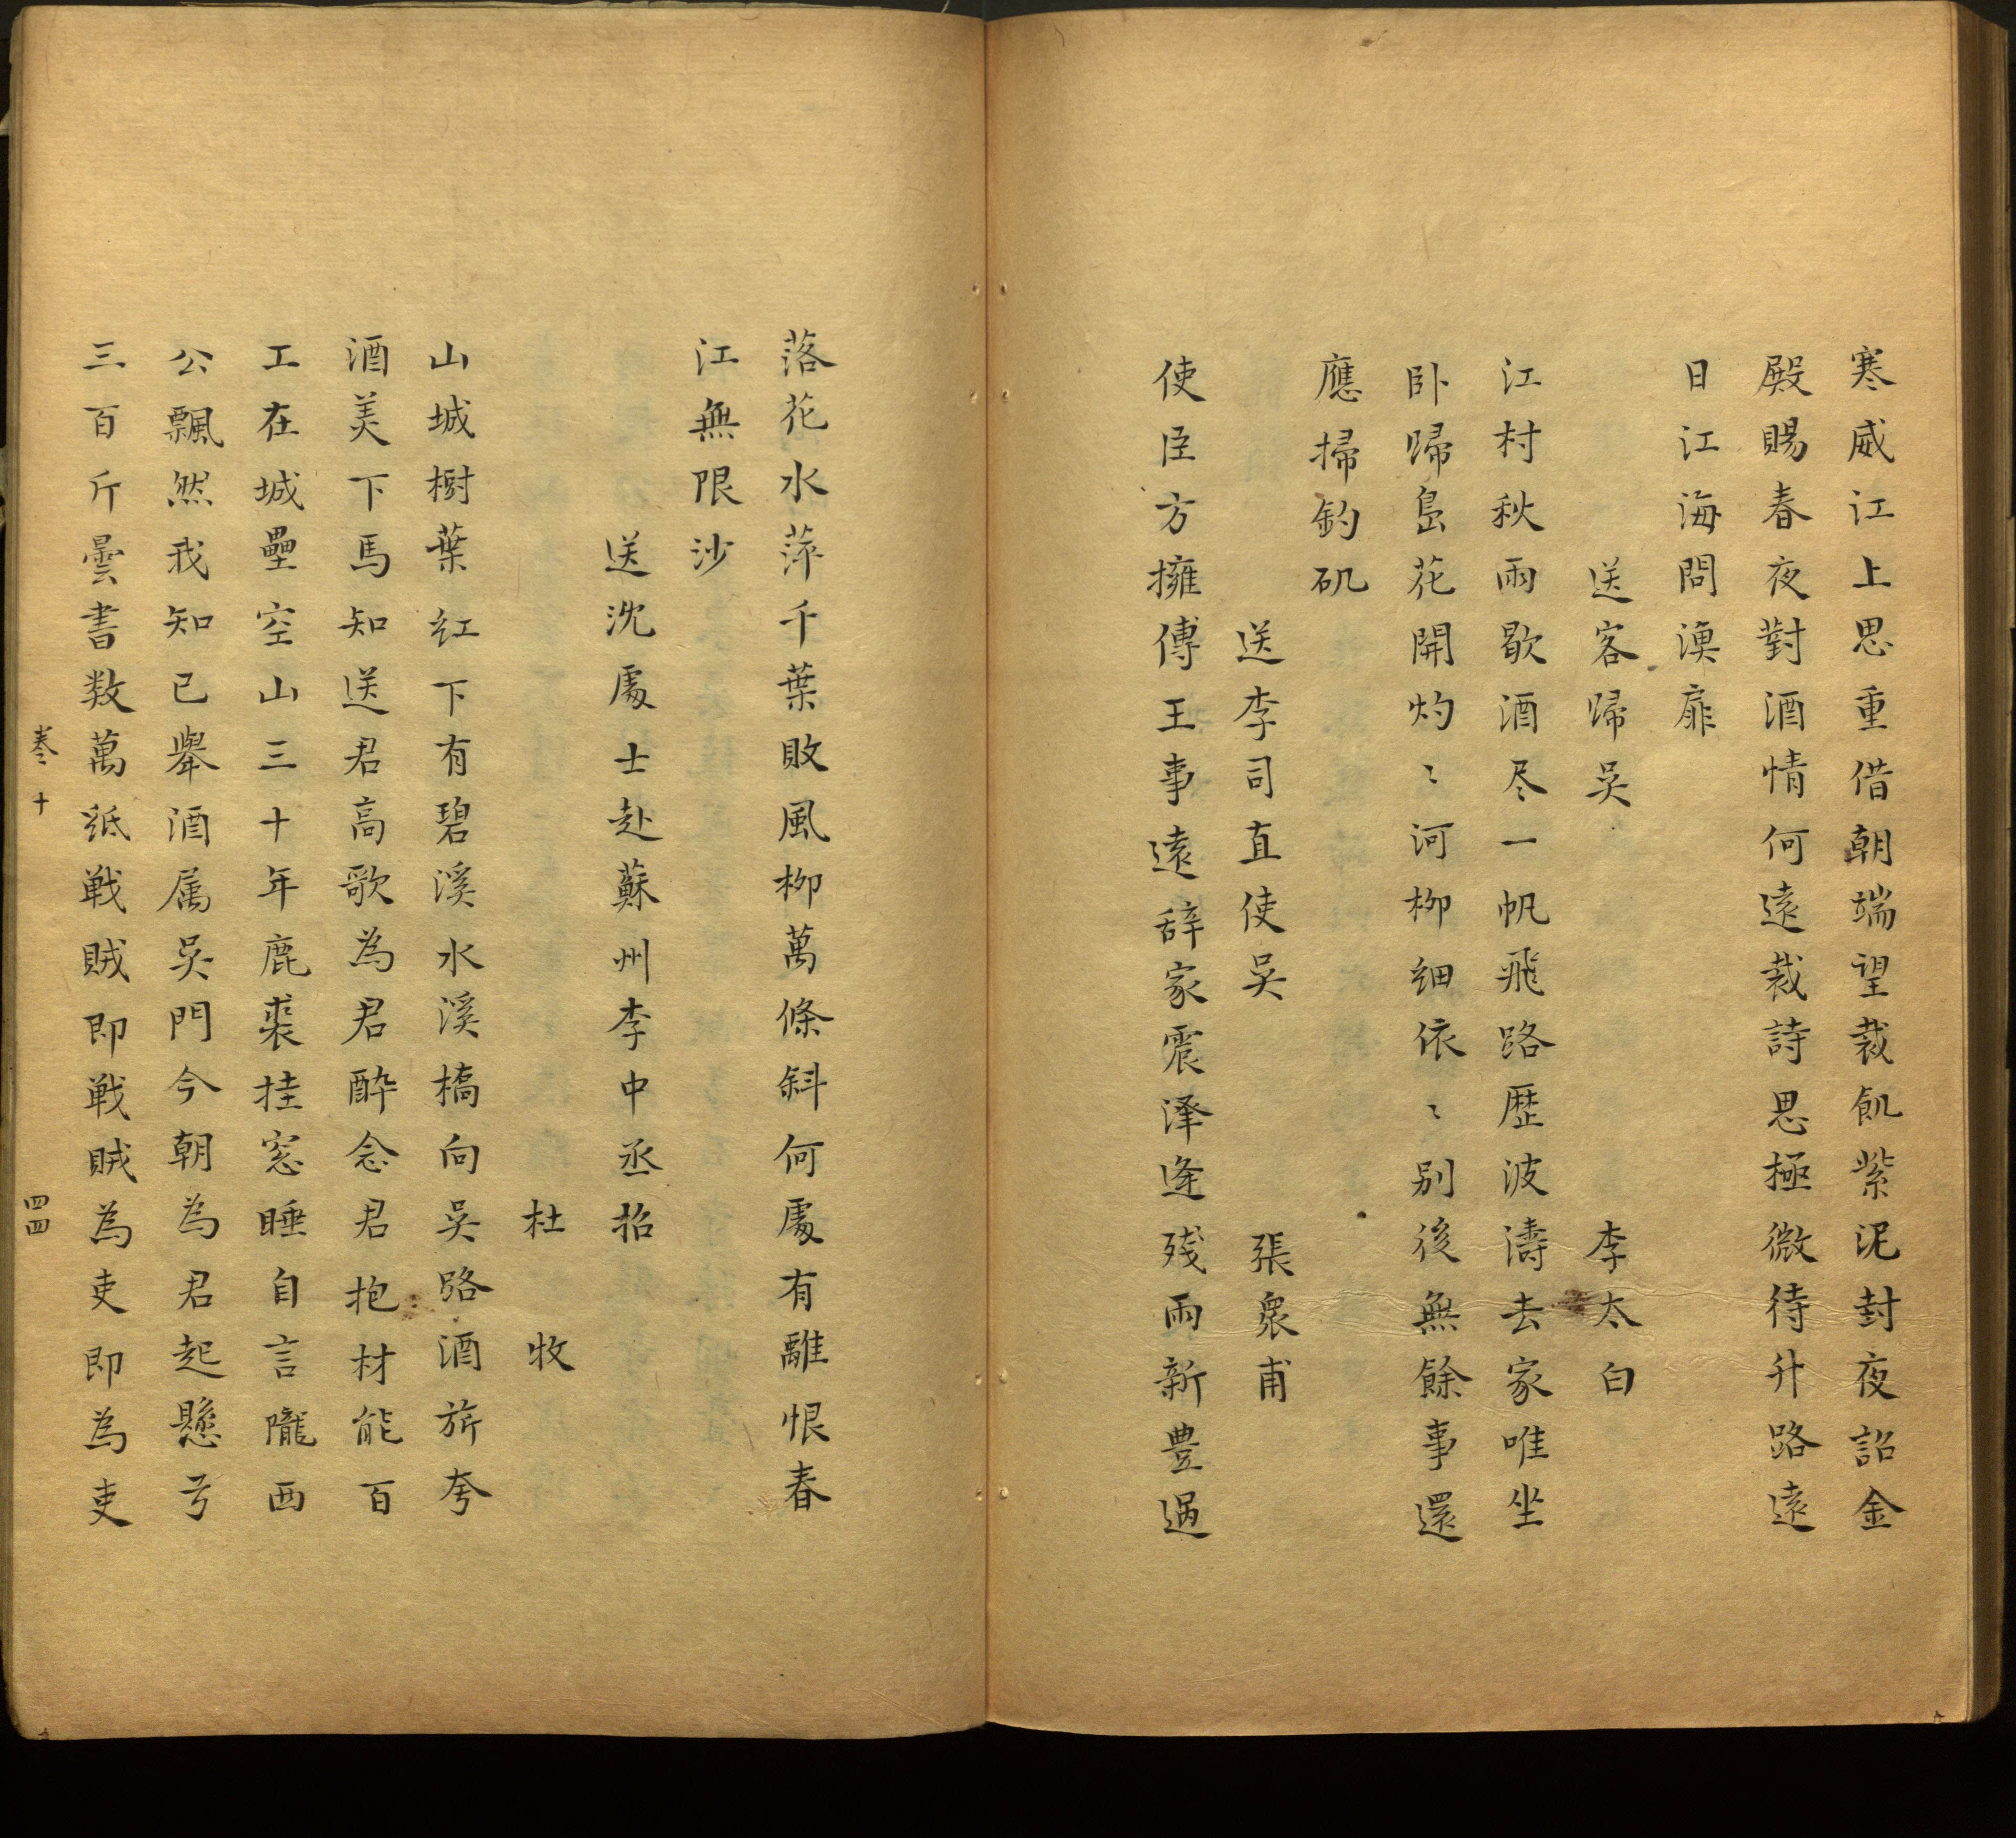 寒威江上思重借朝端望裁飢紫泥封夜詔金
殿賜春夜對酒情何遠裁詩思極微待升路遠
日江海問漁扉
送客歸吳 李太白
江村秋雨歇酒尽一帆飛路歷波濤去家唯坐
卧歸島花開灼〻河柳細依〻別後無餘事還
應掃釣矶
送李司直使吳 張衆甫
使臣方擁傳王事遠辞家震泽逢残雨新豊過
落花水萍千葉敗風柳萬條斜何處有離恨春
江無限沙
送沈處士赴蘇州李中丞招
杜牧
山城樹葉红下有碧溪水溪橋向吳路酒旂夸
酒美下馬知送君高歌為君醉念君抱材能百
工在城壘空山三十年鹿裘挂窓睡自言隴西
公飄然我知已舉酒属吳門今朝為君起懸弓
三百斤曩書数萬紙戦賊即戦賊為吏即為吏
卷十
四四